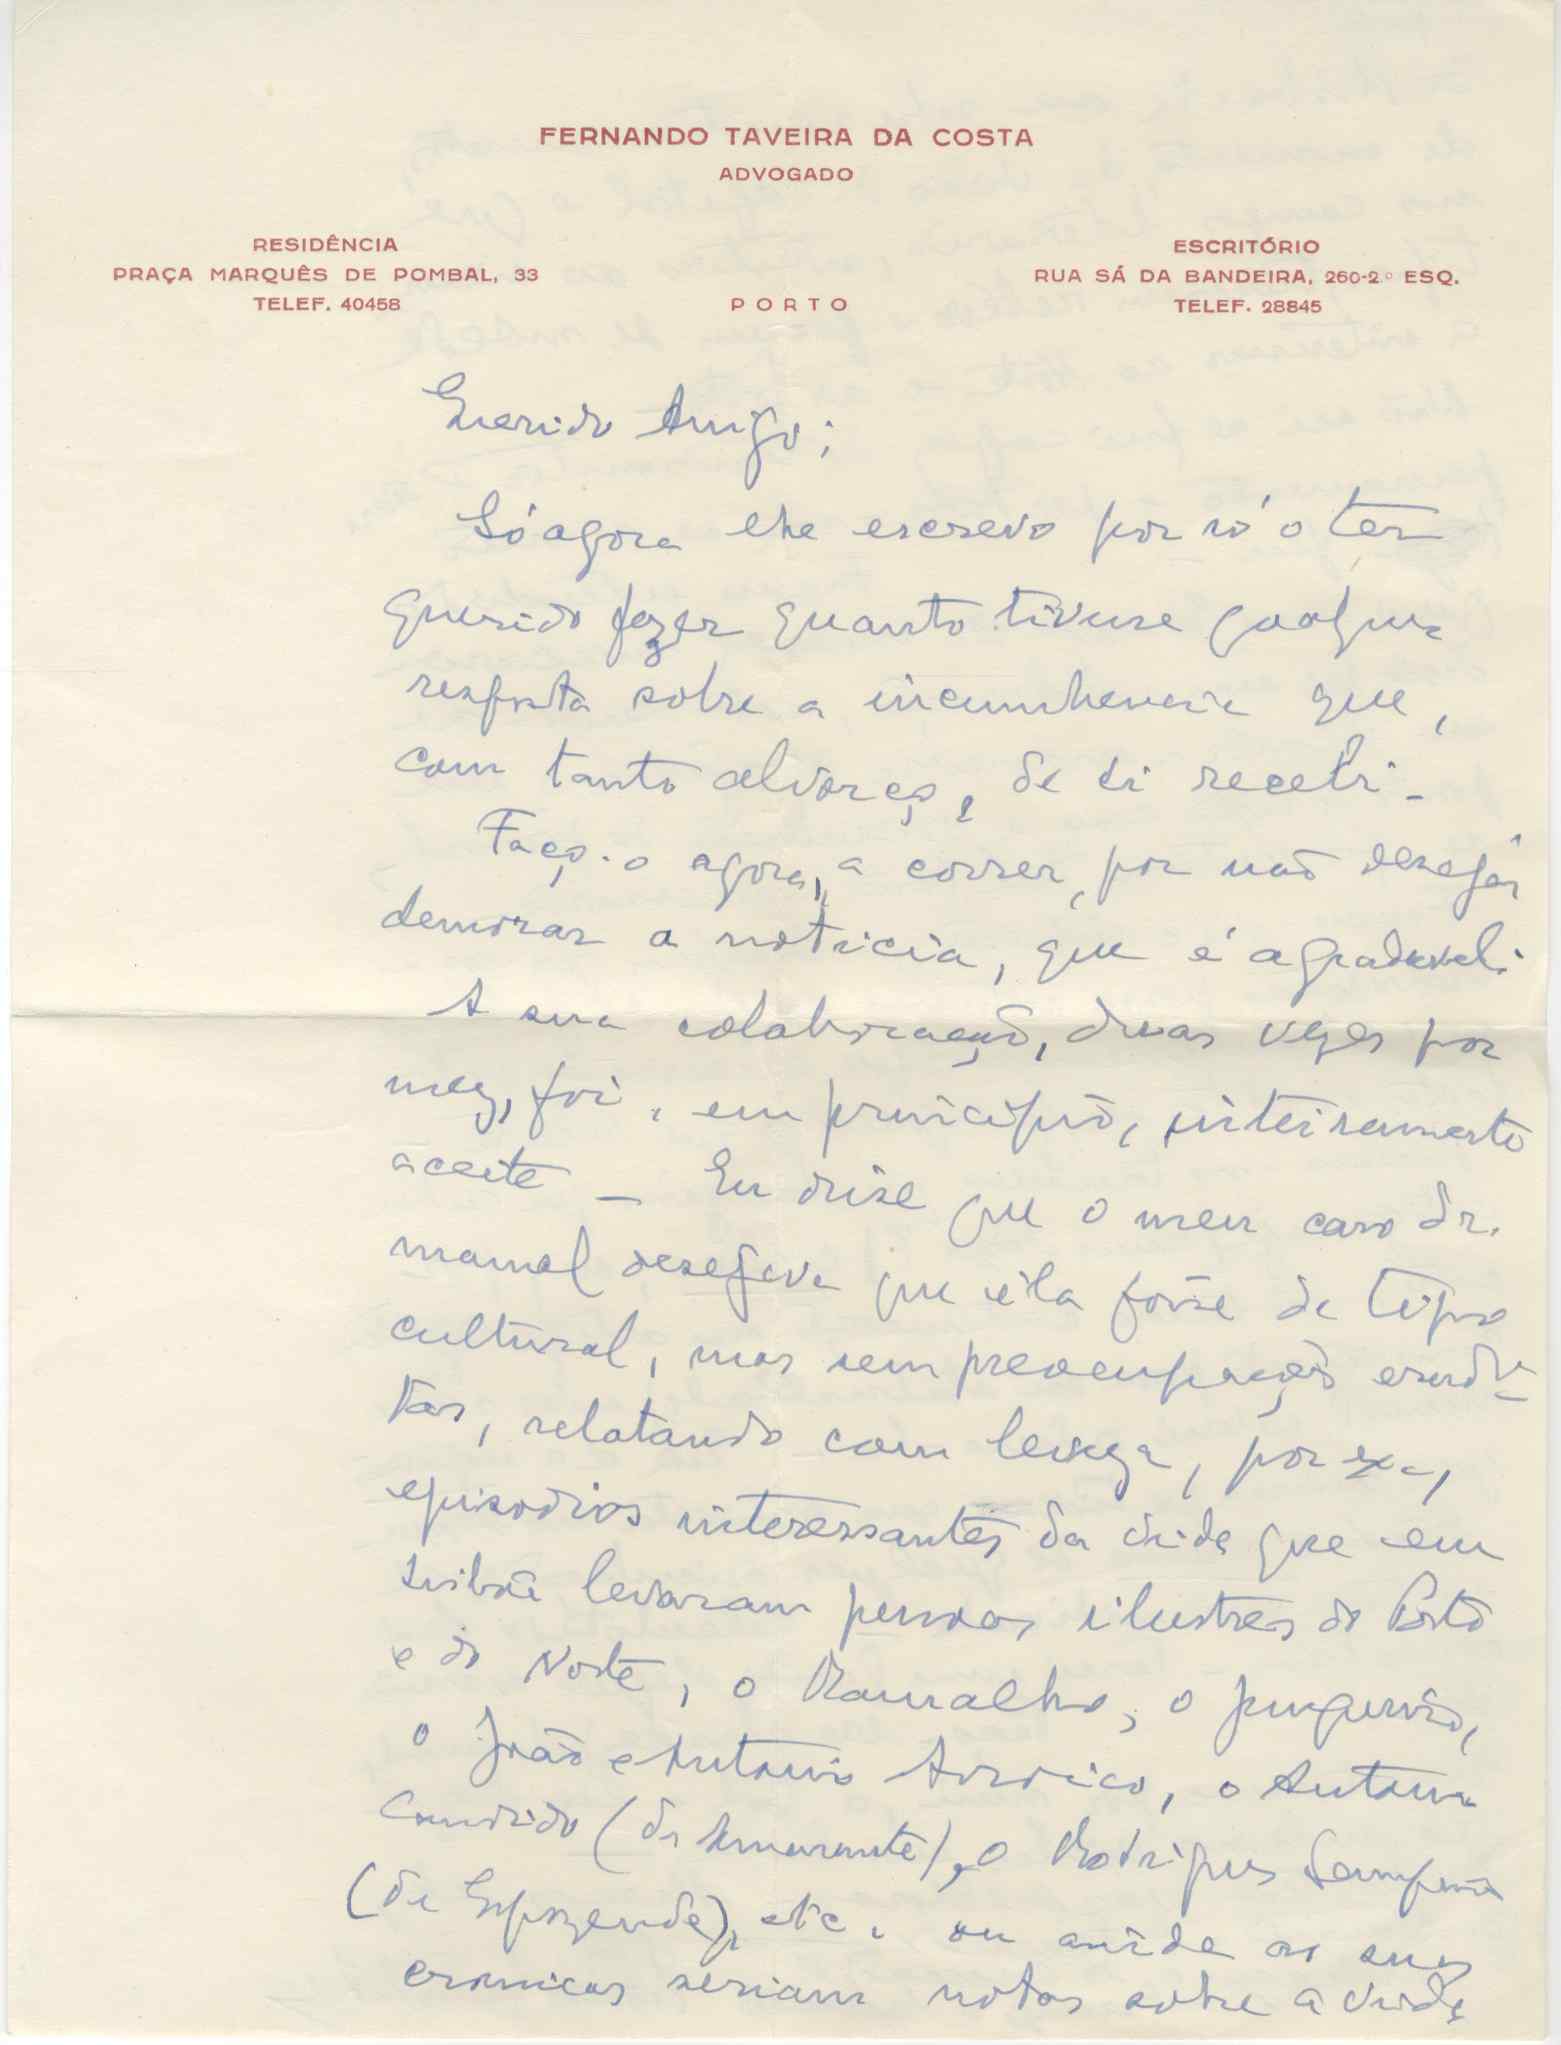 FERNANDO TAVEIRA DA COSTA
ADVOGADO
RESIDÊNCIA
PRAÇA MARQUÊS DE POMBAL, 33
TELEF. 40458
PORTO
ESCRITÓRIO
RUA SÁ DA BANDEIRA, 260-2.º ESQ.
TELEF. 28845
Querido Amigo;
Só agora lhe escrevo por só o ter
querido fazer quanto tivesse qualquer
resposta sobre a incumbencia que,
com tanto alvoroço, de si recebi -
Faço-o agora, a correr, por não desejar
demorar a noticia, que é agradavel.
A sua colaboração, duas vezes por
mez, foi, em principio, inteiramente
aceite - Eu disse que o meu caro Dr.
Manuel desejava que ela fôsse de tipo
cultural, mas sem preocupações erudi-
tas, relatando com leveza, por ex.,
episodios interessantes da vida que em
Lisboa levaram pessoas ilustres do Porto
e do Norte, o Ramalho, o Junqueiro,
o João e Antonio Arroio, o Antonio
Candido (de Amarante), o Rodrigues Sampaio
(de Espozende), etc. ou ainda as suas
cronicas seriam notas sobre a vida